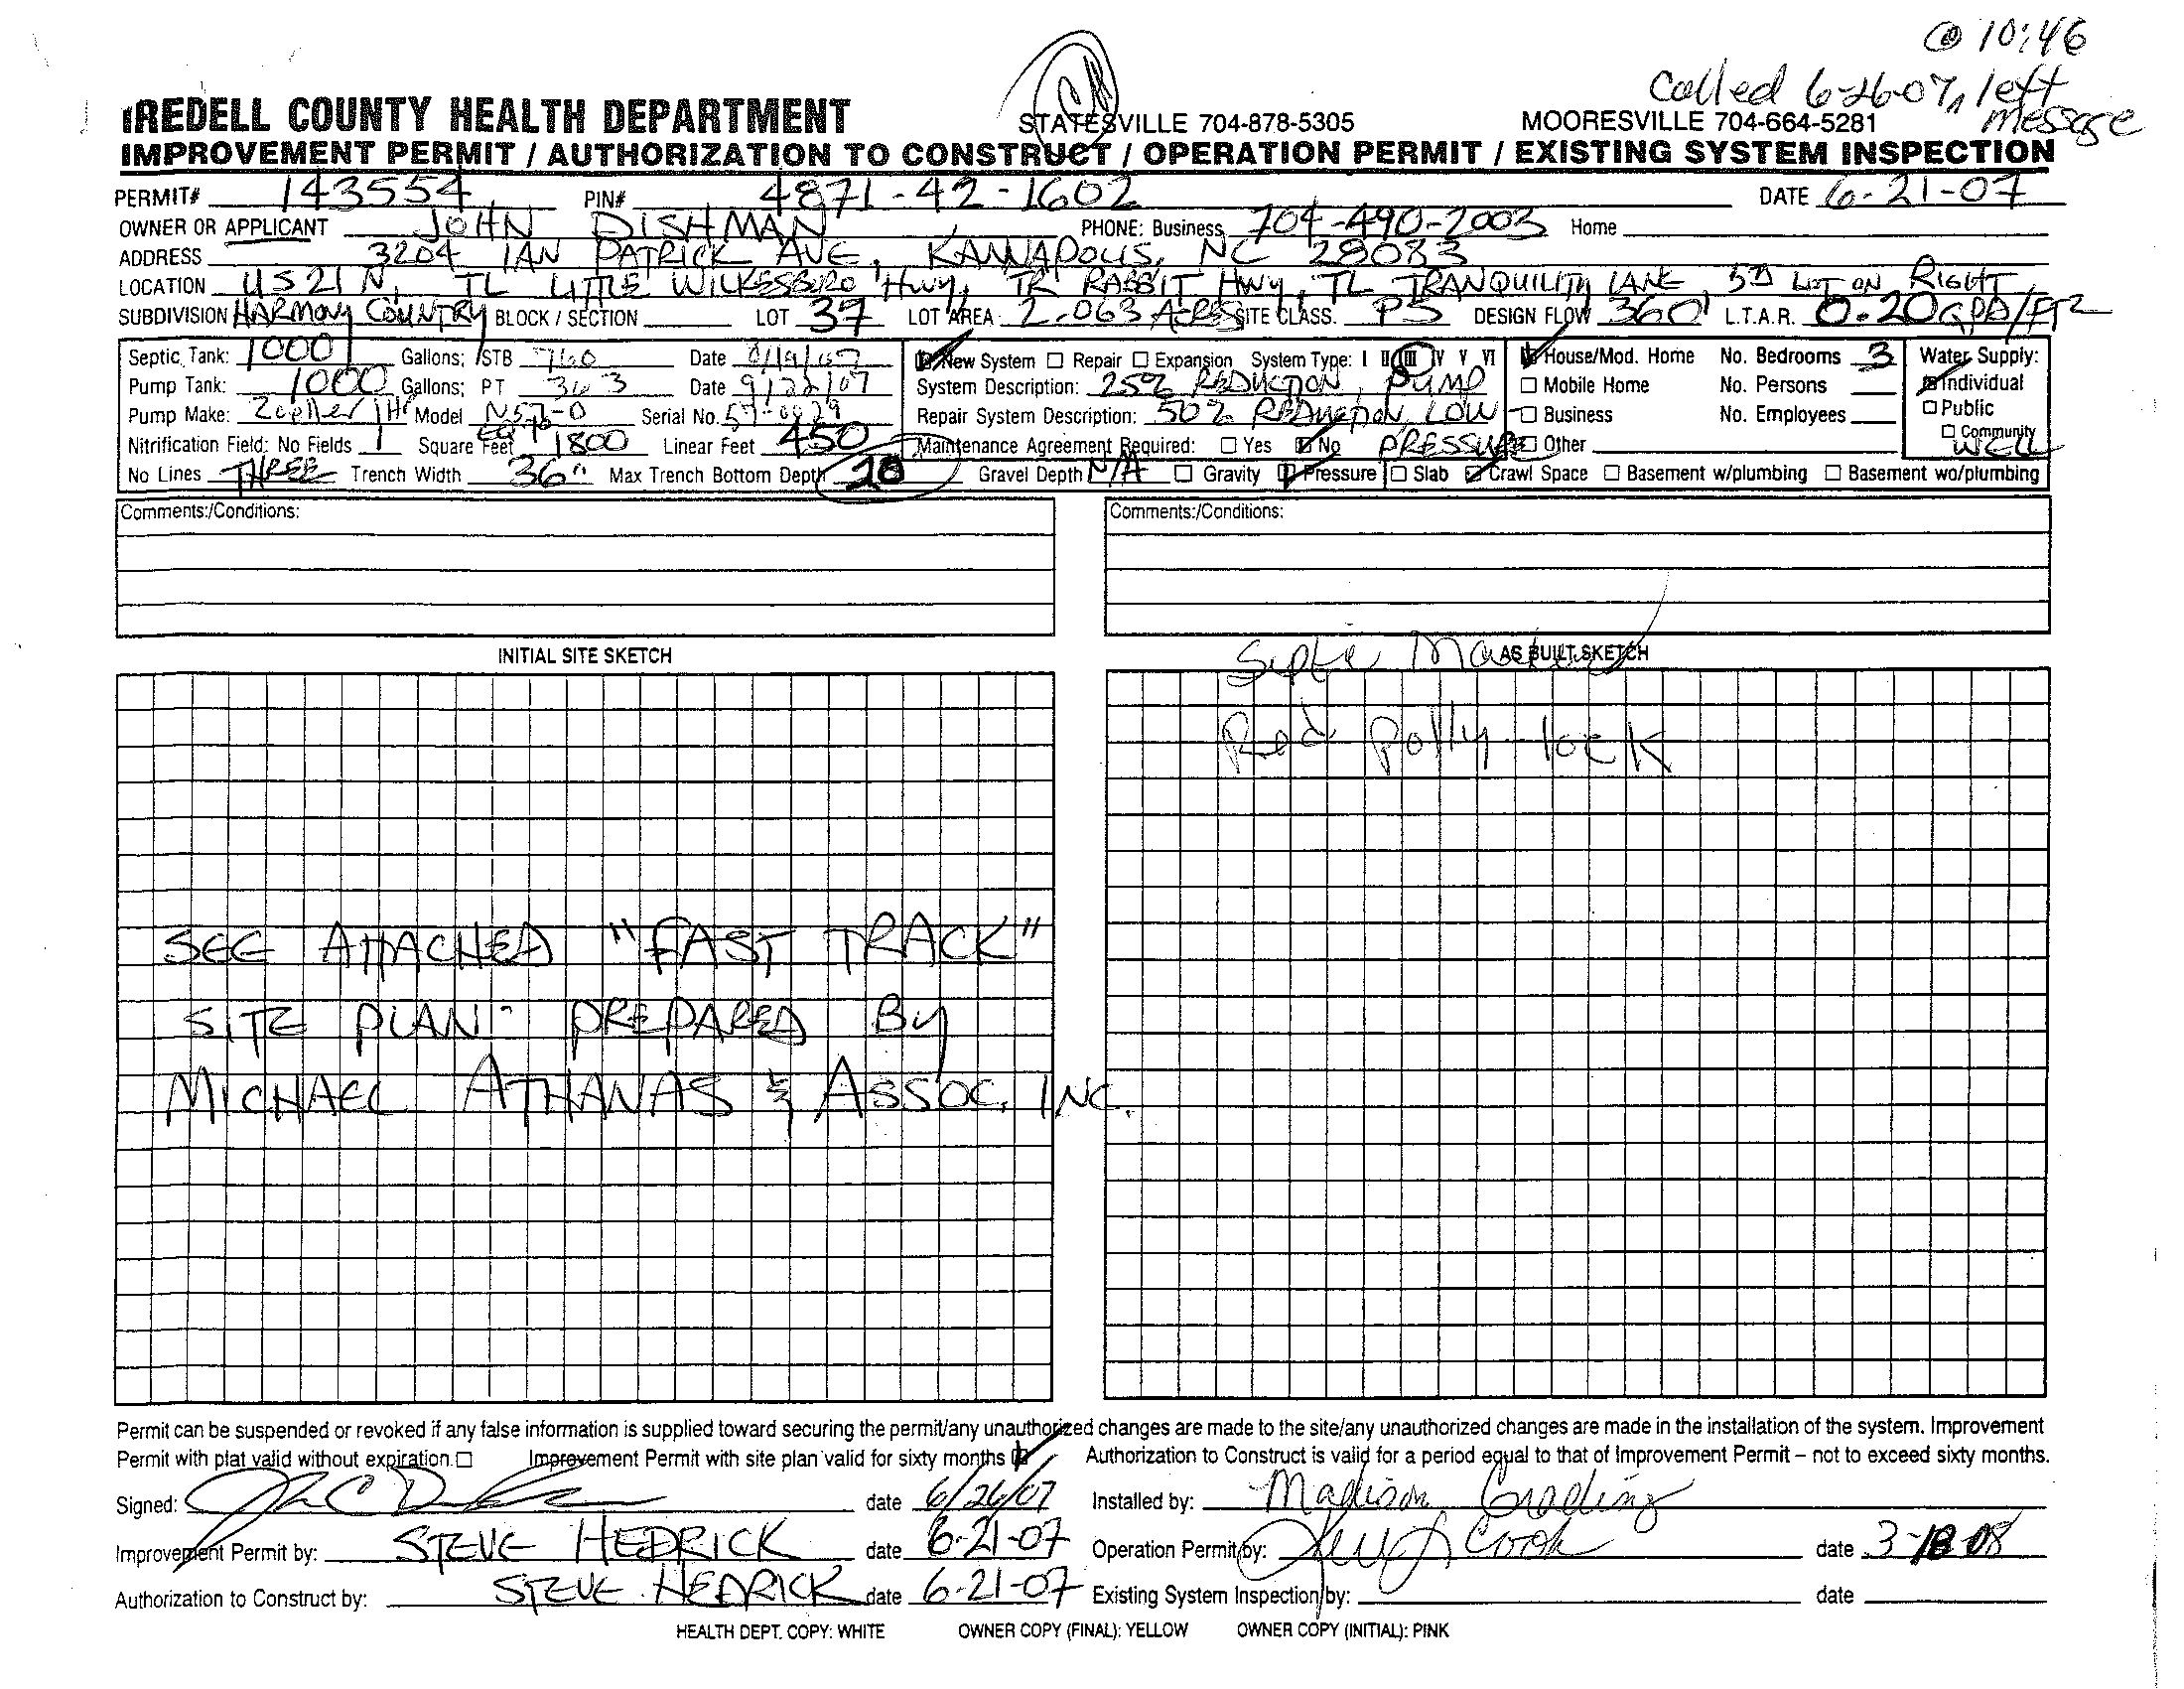 @ 10:46
Called 6-26-07, left
message
IREDELL COUNTY HEALTH DEPARTMENT STATESVILLE 704-878-5305 MOORESVILLE 704-664-5281
IMPROVEMENT PERMIT / AUTHORIZATION TO CONSTRUCT / OPERATION PERMIT / EXISTING SYSTEM INSPECTION
PERMIT# 143554 PIN# 4871-42-1602 DATE 6-21-07
OWNER OR APPLICANT JOHN DISHMAN PHONE: Business 704-490-2003 Home
ADDRESS 3204 IAN PATRICK AVE, KANNAPOLIS, NC 28083
LOCATION US 21 N, TL LITTLE WILKESBORO HWY, TR RABBIT HWY, TL TRANQUILITY LANE, 5th LOT ON RIGHT
SUBDIVISION HARMONY COUNTRY BLOCK / SECTION LOT 37 LOT AREA 2.063 ACRES SITE CLASS. PS DESIGN FLOW 360 L.T.A.R. 0.20 GPD/FT2
Septic Tank: 1000 Gallons; STB 760 Date 8/19/07 New System Repair Expansion System Type: I II III IV V VI House/Mod. Home No. Bedrooms 3 Water Supply:
Pump Tank: 1000 Gallons; PT 363 Date 9/22/07 System Description: 25% REDUCTION, PUMP Mobile Home No. Persons Individual
Pump Make: Zoeller Model N57-0 Serial No. Repair System Description: 50% REDUCTION, LOW Business No. Employees Public
Nitrification Field: No Fields 1 Square Feet EQ 1800 Linear Feet 450 Maintenance Agreement Required: Yes No PRESSURE Other Community WELL
No Lines THREE Trench Width 36" Max Trench Bottom Depth 28 Gravel Depth N/A Gravity Pressure Slab Crawl Space Basement w/plumbing Basement wo/plumbing
Comments:/Conditions: Comments:/Conditions:
INITIAL SITE SKETCH
AS BUILT SKETCH
Red Polly lock
SEE ATTACHED "FAST TRACK"
SITE PLAN PREPARED BY
MICHAEL ATHANAS & ASSOC. INC.
Permit can be suspended or revoked if any false information is supplied toward securing the permit/any unauthorized changes are made to the site/any unauthorized changes are made in the installation of the system. Improvement
Permit with plat valid without expiration. Improvement Permit with site plan valid for sixty months Authorization to Construct is valid for a period equal to that of Improvement Permit – not to exceed sixty months.
Signed: date 6/26/07 Installed by: Madison Grading
Improvement Permit by: STEVE HEDRICK date 6-21-07 Operation Permit by: Cook date 3-18-08
Authorization to Construct by: STEVE HEDRICK date 6-21-07 Existing System Inspection by: date
HEALTH DEPT. COPY: WHITE OWNER COPY (FINAL): YELLOW OWNER COPY (INITIAL): PINK